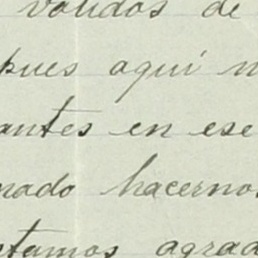 validos de
pues aquí n
antes en ese
nado hacernos
stamos agrad